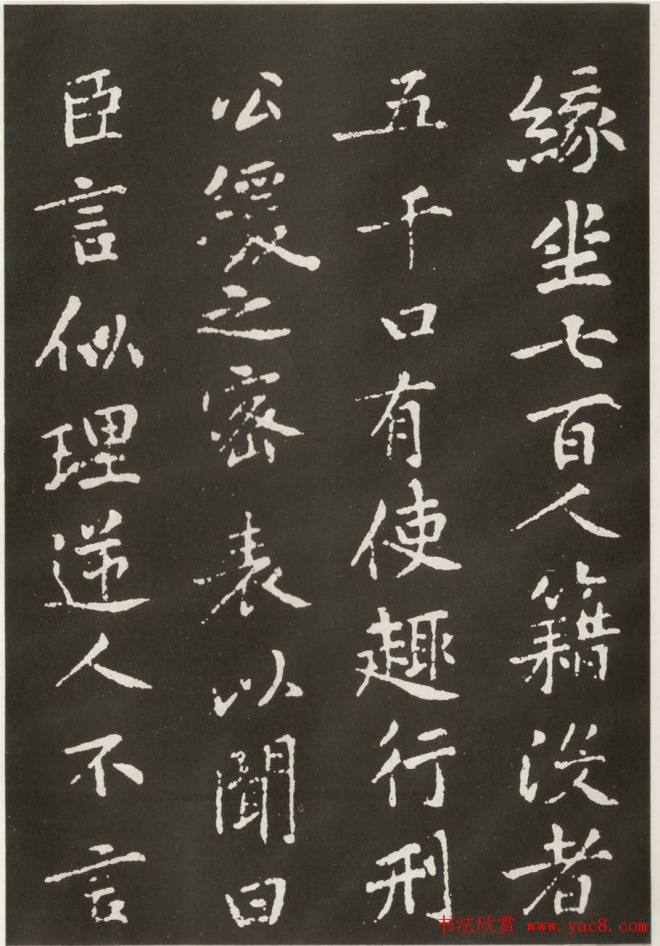 緣坐七百人籍沒者
五千口有使趣行刑
公緩之密表以聞曰
臣言似理逆人不言
书法欣赏 www.yac8.com